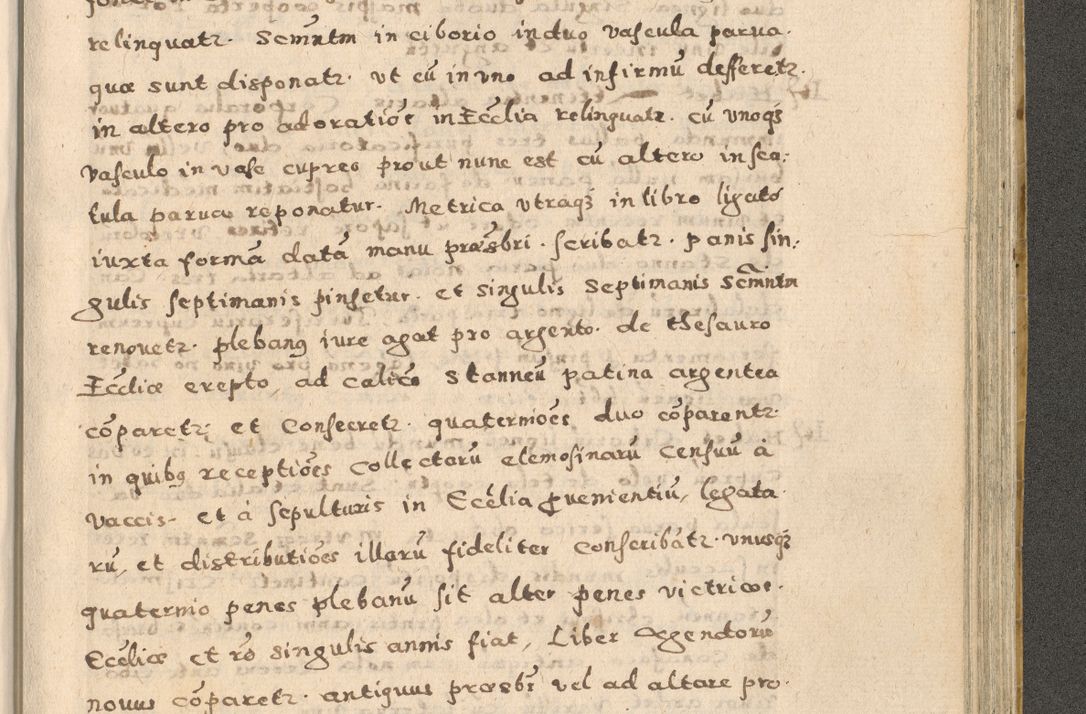 relinquatz. Scm̃ntm in ciborio in duo vascula parua.
quæ sunt disponatz. vt cũ in vno ad infirmũ defferetz.
in altero pro adoratiõe in Eccĺia relinquatz. cũ vnoqȝ
vasculo in vase cupreo prout nunc est cũ altero in sca:
tula parua reponatur. Metrica vtraqȝ in libro ligato
iuxta formã datã manu præsbri. scribatz. panis sin:
gulis septimanis pinsetur. et singulis septimanis Scm̃ntm
renouetz. plebanꝰ iure agat pro argento. de thesauro
Eccĺiæ erepto, ad calicẽ stanneũ patina argentea
cõparetz; et Consecretz. quaterniões duo cõparentz.
in quibꝰ receptiões Collectarũ elemosinarũ Censuũ à
vaccis. et à sepulturis in Eccĺia ꝓuenientiũ, legata.
rũ, et distributiões illarũ fideliter Conscribãtz. vnusqȝ
quaternio penes plebanũ sit alter penes victricos.
Eccĺiæ et rõ singulis annis fiat, Liber Agendorũ
nouus cõparetz. antiquus præsbr̃ vel ad altare pro.